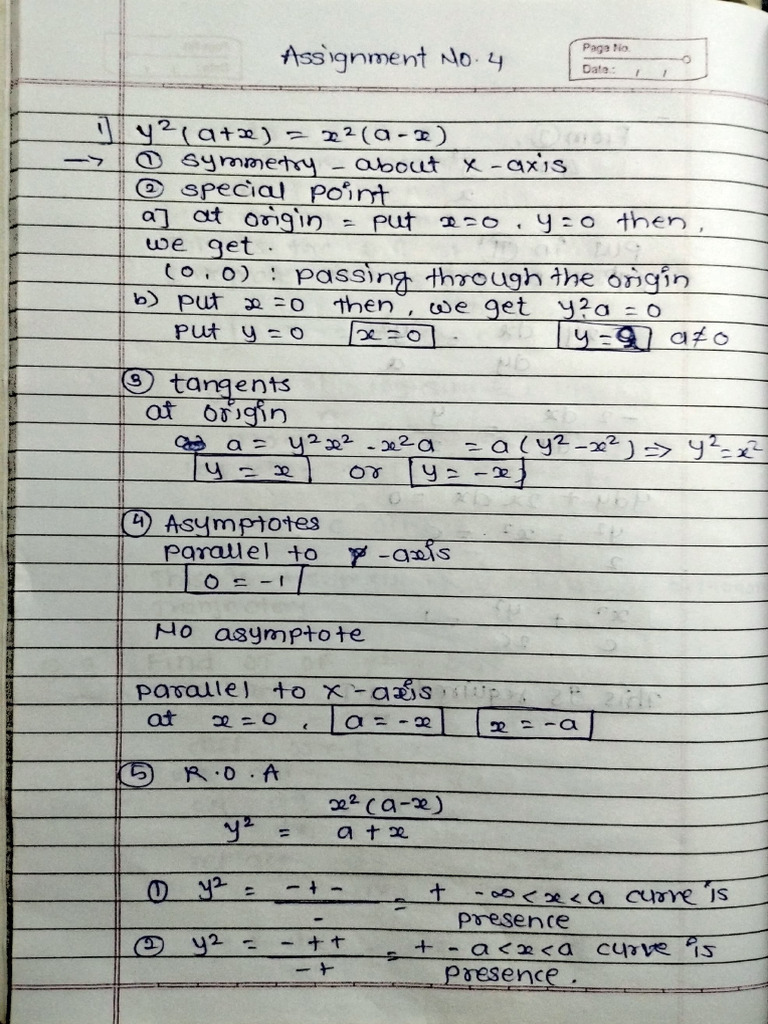 Assignment No. 4
Page No.
Date: / /
1] y²(a+x) = x²(a-x)
→ ① symmetry - about x-axis
② special point
a] at origin = put x=0, y=0 then,
we get.
(0,0) : passing through the origin
b) put x=0 then, we get y²a = 0
put y = 0 x=0 y=0 a≠0
③ tangents
at origin
a = y²x² - x²a = a(y²-x²) ⇒ y²=x²
y = x or y = -x
④ Asymptotes
parallel to -axis
0 = -1
No asymptote
parallel to x-axis
at x=0, a=-x x=-a
⑤ R.O.A
y² = x²(a-x) / a+x
① y² = -+- / - = + -∞<x<a curve is
presence
② y² = -++ / -+ = + -a<x<a curve is
presence.